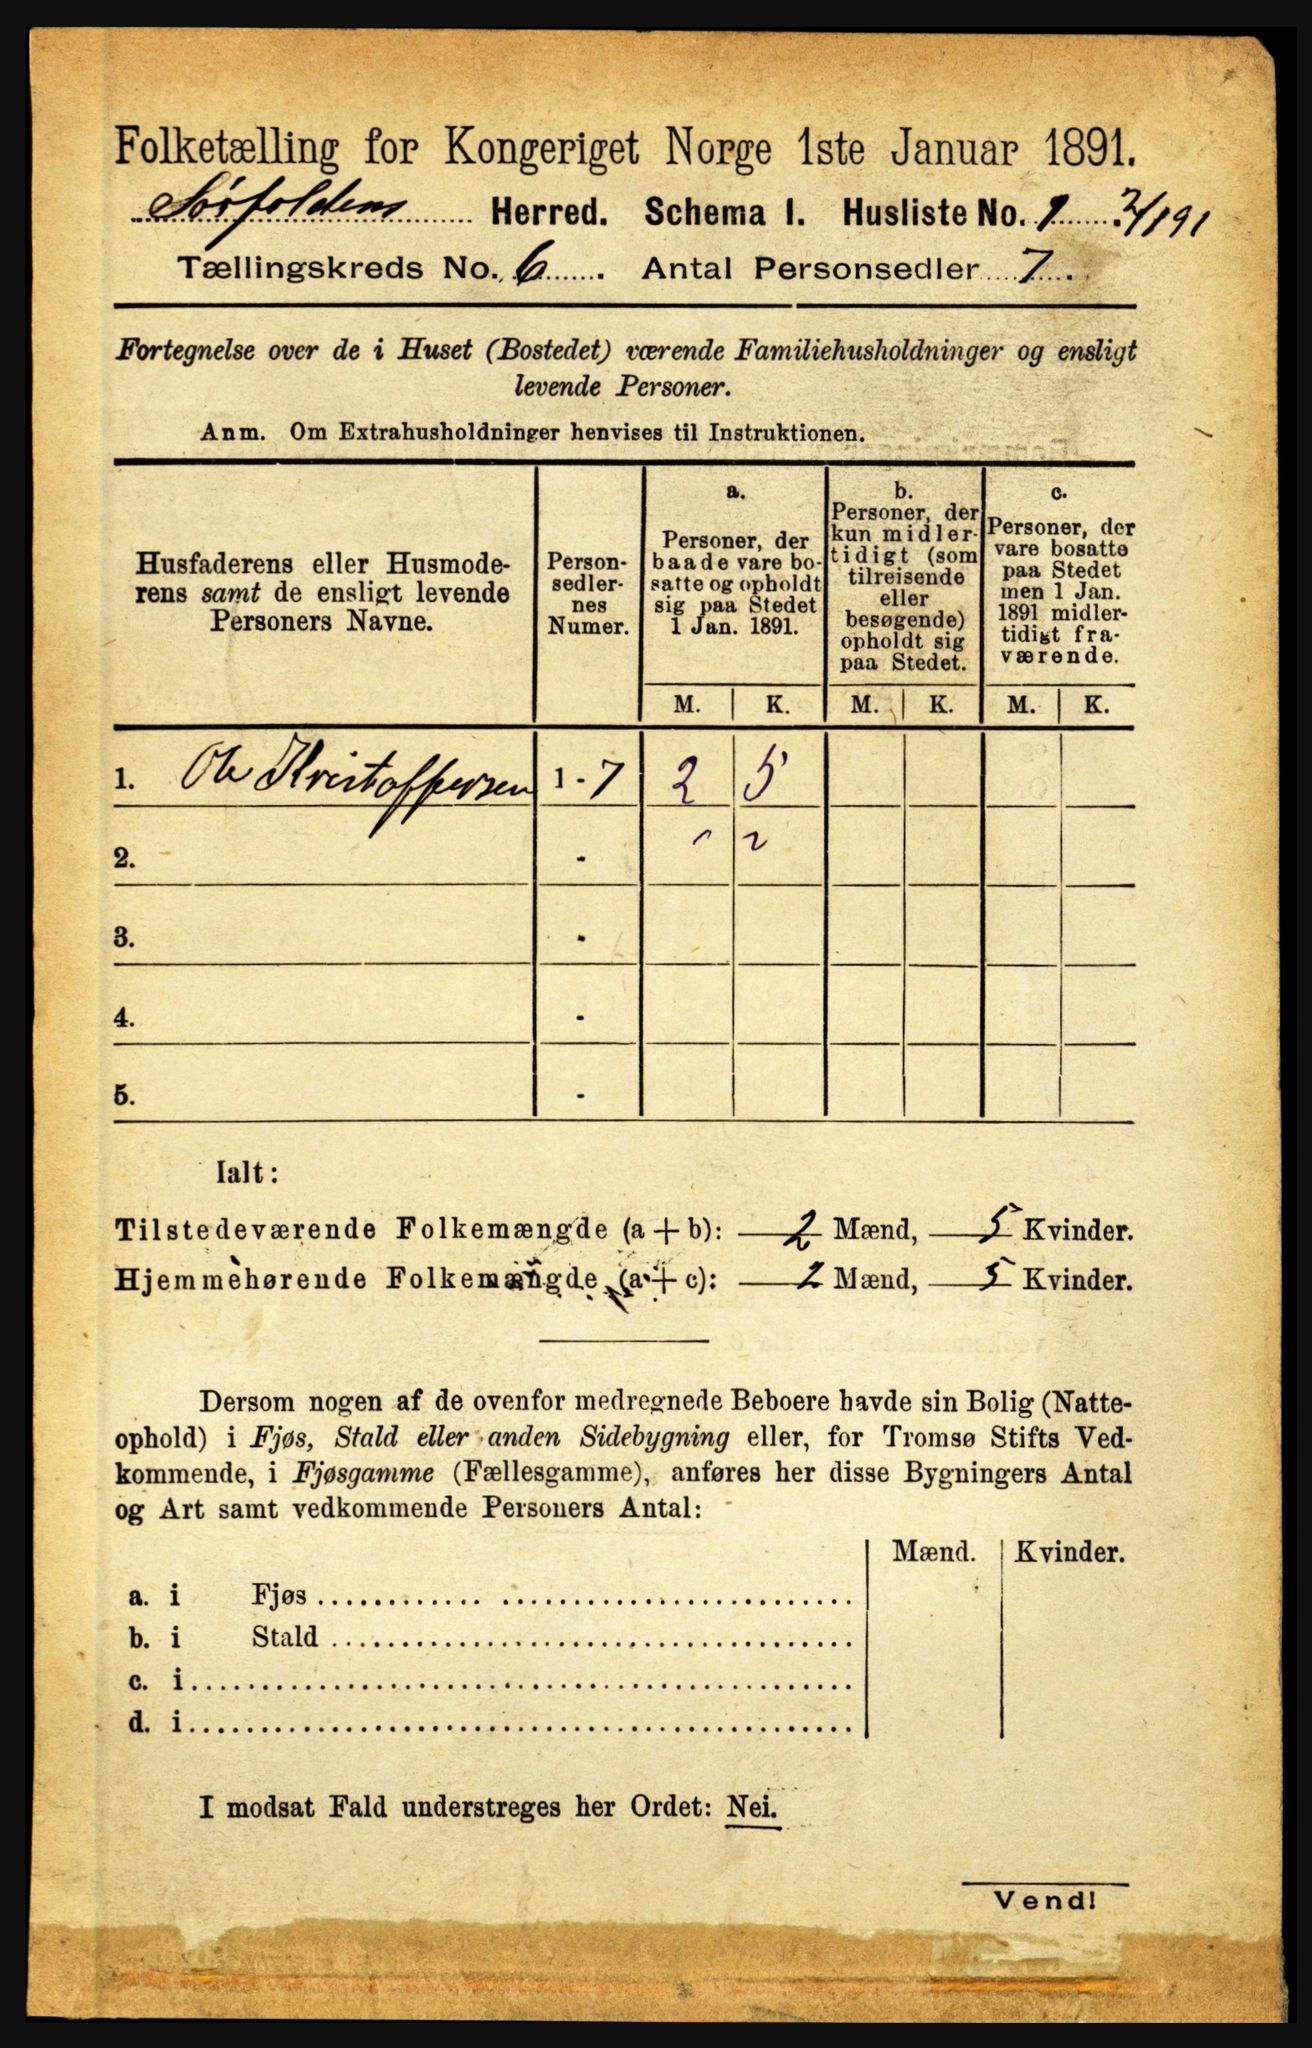 Folketælling for Kongeriget Norge 1ste Januar 1891.
Sørfoldens Herred. Schema I. Husliste No. 1
Tællingskreds No. 6. Antal Personsedler 7.
Fortegnelse over de i Huset (Bostedet) værende Familiehusholdninger og ensligt
levende Personer.
Anm. Om Extrahusholdninger henvises til Instruktionen.
Husfaderens eller Husmode-
rens samt de ensligt levende
Personers Navne.
Person-
sedler-
nes
Numer.
a.
Personer, der
baade vare bo-
satte og opholdt
sig paa Stedet
1 Jan. 1891.
b.
Personer, der
kun midler-
tidigt (som
tilreisende
eller
besøgende)
opholdt sig
paa Stedet.
c.
Personer, der
vare bosatte
paa Stedet
men 1 Jan.
1891 midler-
tidigt fra-
værende.
M. K. M. K. M. K.
1. Ole Kristoffersen 1 - 7 2 5
2. - 2
3. -
4. -
5. -
Ialt:
Tilstedeværende Folkemængde (a + b): 2 Mænd, 5 Kvinder.
Hjemmehørende Folkemængde (a + c): 2 Mænd, 5 Kvinder.
Dersom nogen af de ovenfor medregnede Beboere havde sin Bolig (Natte-
ophold) i Fjøs, Stald eller anden Sidebygning eller, for Tromsø Stifts Ved-
kommende, i Fjøsgamme (Fællesgamme), anføres her disse Bygningers Antal
og Art samt vedkommende Personers Antal:
Mænd. Kvinder.
a. i Fjøs
b. i Stald
c. i
d. i
I modsat Fald understreges her Ordet: Nei.
Vend!